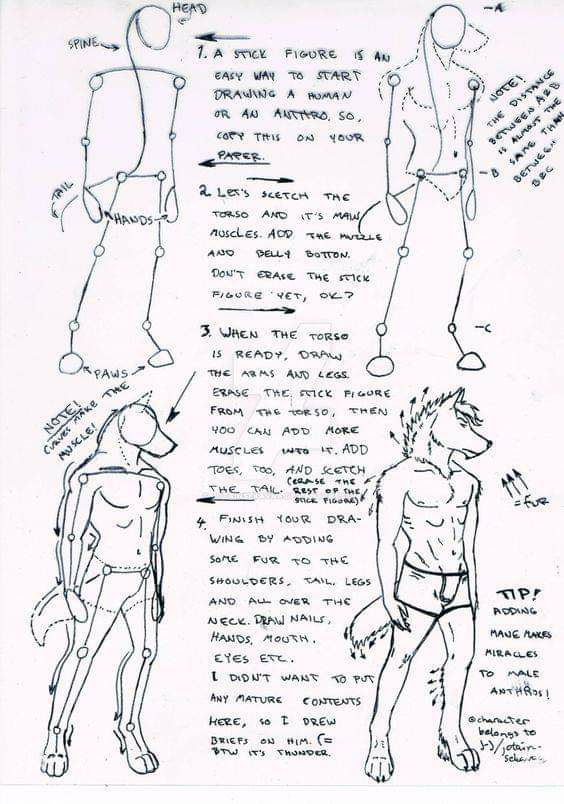 HEAD
SPINE
1. A STICK FIGURE IS AN
EASY WAY TO START
DRAWING A HUMAN
OR AN ANTHRO. SO,
COPY THIS ON YOUR
PAPER.
TAIL
HANDS
PAWS
-A
-B
-C
NOTE!
THE DISTANCE
BETWEEN A&B
IS ALMOST THE
SAME THAN
BETWEEN
B&C
2. LET'S SKETCH THE
TORSO AND IT'S MAIN
MUSCLES. ADD THE MUZZLE
AND BELLY BOTTON.
DON'T ERASE THE STICK
FIGURE YET, OK?
3. WHEN THE TORSO
IS READY, DRAW
THE ARMS AND LEGS.
ERASE THE STICK FIGURE
FROM THE TORSO, THEN
YOU CAN ADD MORE
MUSCLES INTO IT. ADD
TOES, TOO, AND SCETCH
THE TAIL. (ERASE THE
REST OF THE
STICK FIGURE)
NOTE!
CURVES MAKE THE
MUSCLE!
4. FINISH YOUR DRA-
WING BY ADDING
SOME FUR TO THE
SHOULDERS, TAIL, LEGS
AND ALL OVER THE
NECK. DRAW NAILS,
HANDS, MOUTH,
EYES ETC.
I DIDN'T WANT TO PUT
ANY MATURE CONTENTS
HERE, SO I DREW
BRIEFS ON HIM. (=
BTW IT'S THUNDER.
= FUR
TIP!
ADDING
MANE MAKES
MIRACLES
TO MALE
ANTHROS!
©character
belongs to